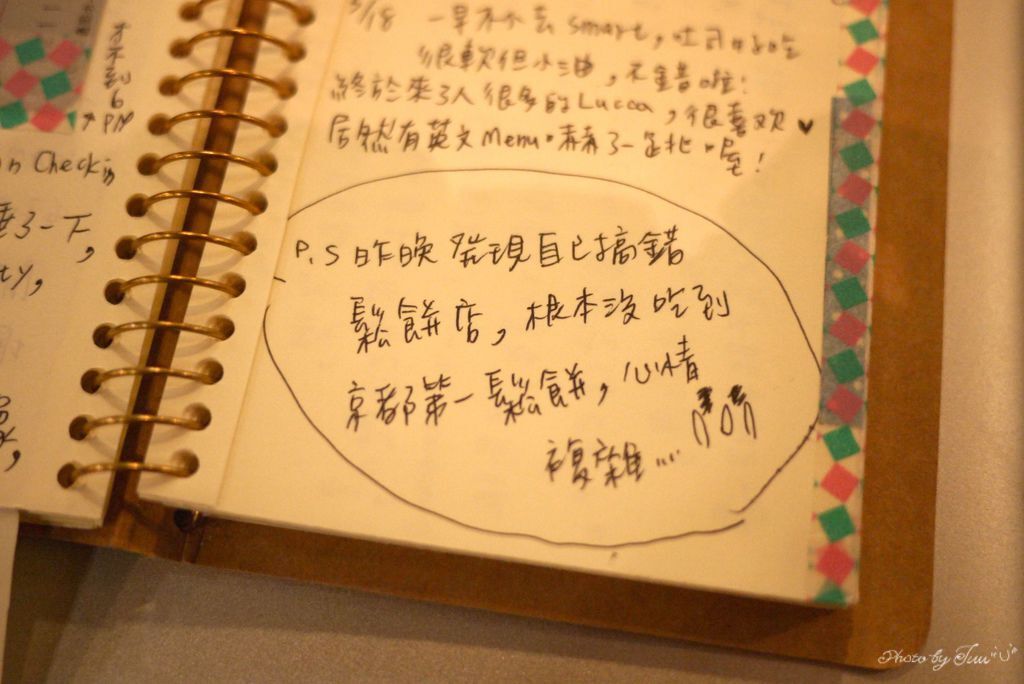 才不到6
PM
n Check in
3/18 一早林小去 smart,吐司好吃
很軟但小油,不錯啦!
終於來了人很多的Lucca,很喜欢♥
居然有英文Menu。
了一下,
ty,
P.S 昨晚發現自己搞錯
鬆餅店,根本沒吃到
京都第一鬆餅,心情
複雜...
Photo by Tuu